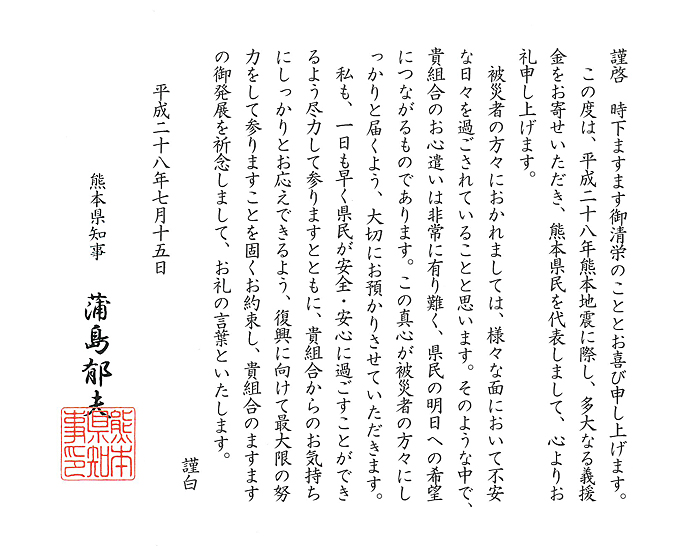 謹啓　時下ますます御清栄のこととお喜び申し上げます。
この度は、平成二十八年熊本地震に際し、多大なる義援
金をお寄せいただき、熊本県民を代表しまして、心よりお
礼申し上げます。
被災者の方々におかれましては、様々な面において不安
な日々を過ごされていることと思います。そのような中で、
貴組合のお心遣いは非常に有り難く、県民の明日への希望
につながるものであります。この真心が被災者の方々にし
っかりと届くよう、大切にお預かりさせていただきます。
私も、一日も早く県民が安全・安心に過ごすことができ
るよう尽力して参りますとともに、貴組合からのお気持ち
にしっかりとお応えできるよう、復興に向けて最大限の努
力をして参りますことを固くお約束し、貴組合のますます
の御発展を祈念しまして、お礼の言葉といたします。
謹白
平成二十八年七月十五日
熊本県知事　蒲島郁夫
熊本
県知
事印